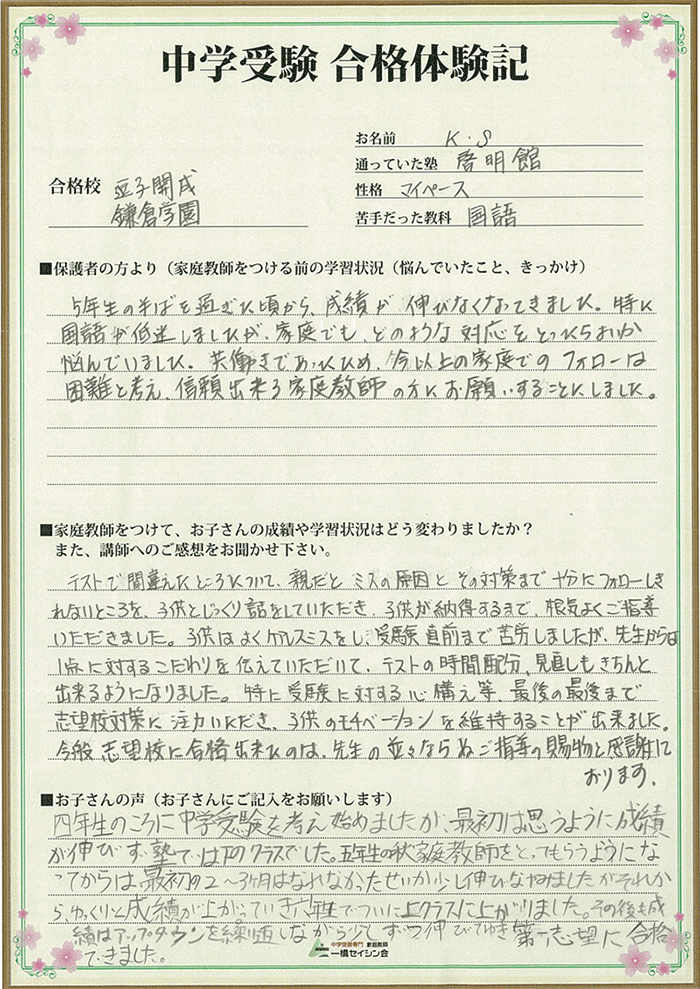 中学受験 合格体験記
お名前 K・S
通っていた塾 啓明館
合格校 逗子開成
鎌倉学園
性格 マイペース
苦手だった教科 国語
■保護者の方より（家庭教師をつける前の学習状況（悩んでいたこと、きっかけ）
5年生の半ばを過ぎた頃から、成績が伸びなくなってきました。特に
国語が低迷しましたが、家庭でも、どのような対応をとったらよいか
悩んでいました。共働きであったため、今以上の家庭でのフォローは
困難と考え、信頼出来る家庭教師の方にお願いすることにしました。
■家庭教師をつけて、お子さんの成績や学習状況はどう変わりましたか？
また、講師へのご感想をお聞かせ下さい。
テストで間違えたところについて、親だとミスの原因とその対策まで十分にフォローしき
れないところを、子供とじっくり話をしていただき、子供が納得するまで、根気よくご指導
いただきました。子供はよくケアレスミスをし、受験直前まで苦労しましたが、先生からは
1点に対するこだわりを伝えていただいて、テストの時間配分、見直しもきちんと
出来るようになりました。特に受験に対する心構え等、最後の最後まで
志望校対策に注力いただき、子供のモチベーションを維持することが出来ました。
今般志望校に合格出来たのは、先生の並々ならぬご指導の賜物と感謝して
おります。
■お子さんの声（お子さんにご記入をお願いします）
四年生のころに中学受験を考え始めましたが、最初は思うように成績
が伸びず、塾では下のクラスでした。五年生の秋家庭教師をとってもらうようにな
ってからは、最初の2～3ヶ月はなれなかったせいか少し伸びなやみましたがそれか
ら、ゆっくりと成績が上がっていき六年生でついに上クラスに上がりました。その後も成
績はアップダウンを繰り返しながら少しずつ伸びてゆき第一志望に合格
できました。
中学受験専門 家庭教師
一橋セイシン会